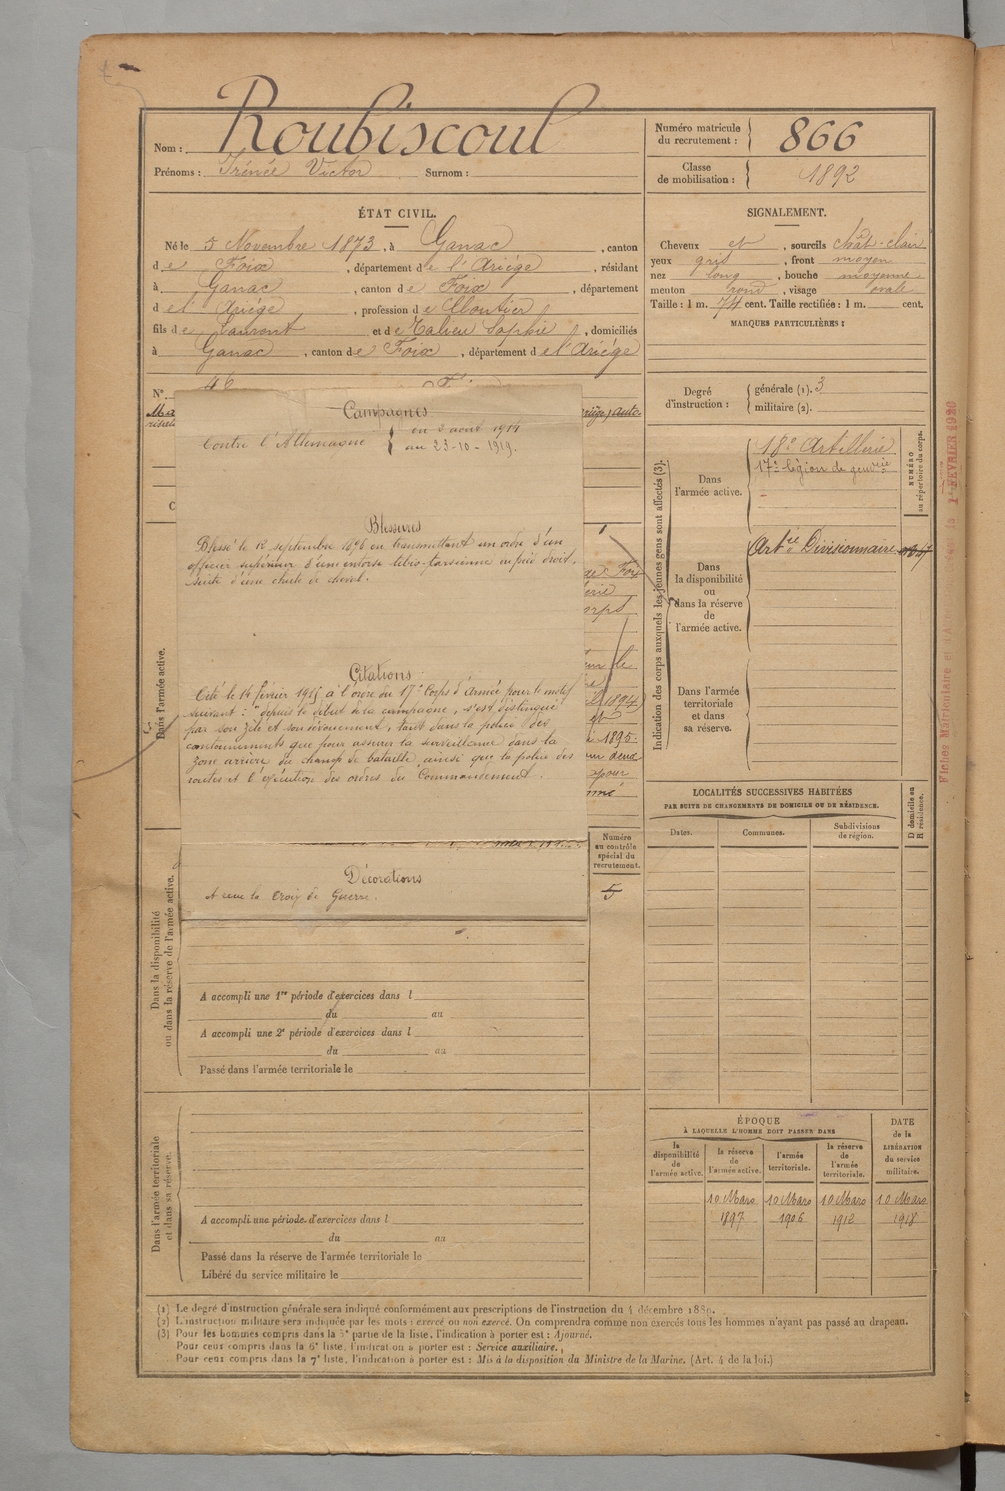 Nom : Roubiscoul
Prénoms : Irénée Victor Surnom :
Numéro matricule du recrutement : 866
Classe de mobilisation : 1892
ÉTAT CIVIL.
Né le 5 Novembre 1873, à Ganac, canton
de Foix, département de l'Ariège, résidant
à Ganac, canton de Foix, département
de l'Ariège, profession de
fils de Laurent et de Sophie, domiciliés
à Ganac, canton de Foix, département de l'Ariège
SIGNALEMENT.
Cheveux et, sourcils chât-clair
yeux gris, front moyen
nez long, bouche moyenne
menton rond, visage ovale
Taille : 1 m. 74 cent. Taille rectifiée : 1 m. cent.
MARQUES PARTICULIÈRES :
Degré d'instruction : générale (1). 3
militaire (2).
N° 46
Campagnes
Contre l'Allemagne
du 2 août 1914
au 23-10-1919.
Blessures
Blessé le 12 septembre 1896 en transmettant un ordre d'un
officier supérieur d'une entorse tibio-tarsienne au pied droit,
suite d'une chute de cheval.
Citations
Cité le 14 février 1915 à l'ordre du 17e Corps d'Armée pour le motif
suivant : "depuis le début de la campagne, s'est distingué
par son zèle et son dévouement, tant dans la police des
cantonnements que pour assurer la surveillance dans la
zone arrière du champ de bataille, ainsi que la police des
routes et l'exécution des ordres du Commandement.
Décorations
A reçu la Croix de Guerre.
1894
1895
Numéro au contrôle spécial du recrutement.
5
Dans l'armée active.
Dans la disponibilité ou dans la réserve de l'armée active.
A accompli une 1re période d'exercices dans l
du au
A accompli une 2e période d'exercices dans l
du au
Passé dans l'armée territoriale le
Dans l'armée territoriale et dans sa réserve.
A accompli une période d'exercices dans l
du au
Passé dans la réserve de l'armée territoriale le
Libéré du service militaire le
Indication des corps auxquels les jeunes gens sont affectés (3).
NUMÉRO au répertoire du corps.
Dans l'armée active.
18e Artillerie
17e légion de gendrie
Dans la disponibilité ou dans la réserve de l'armée active.
Artie Divisionnaire
Dans l'armée territoriale et dans sa réserve.
LOCALITÉS SUCCESSIVES HABITÉES
PAR SUITE DE CHANGEMENTS DE DOMICILE OU DE RÉSIDENCE.
Dates. Communes. Subdivisions de région. D domicile ou R résidence.
ÉPOQUE
À LAQUELLE L'HOMME DOIT PASSER DANS
la disponibilité de l'armée active. la réserve de l'armée active. l'armée territoriale. la réserve de l'armée territoriale.
DATE de la LIBÉRATION du service militaire.
10 Mars 10 Mars 10 Mars 10 Mars
1897 1906 1912 1918
(1) Le degré d'instruction générale sera indiqué conformément aux prescriptions de l'instruction du 4 décembre 1889.
(2) L'instruction militaire sera indiquée par les mots : exercé ou non exercé. On comprendra comme non exercés tous les hommes n'ayant pas passé au drapeau.
(3) Pour les hommes compris dans la 5e partie de la liste, l'indication à porter est : Ajourné.
Pour ceux compris dans la 6e liste, l'indication à porter est : Service auxiliaire.
Pour ceux compris dans la 7e liste, l'indication à porter est : Mis à la disposition du Ministre de la Marine. (Art. 4 de la loi.)